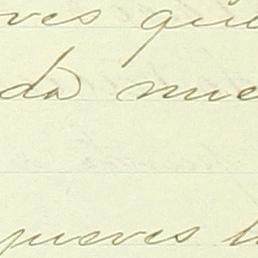 ves que
da nue
jueves